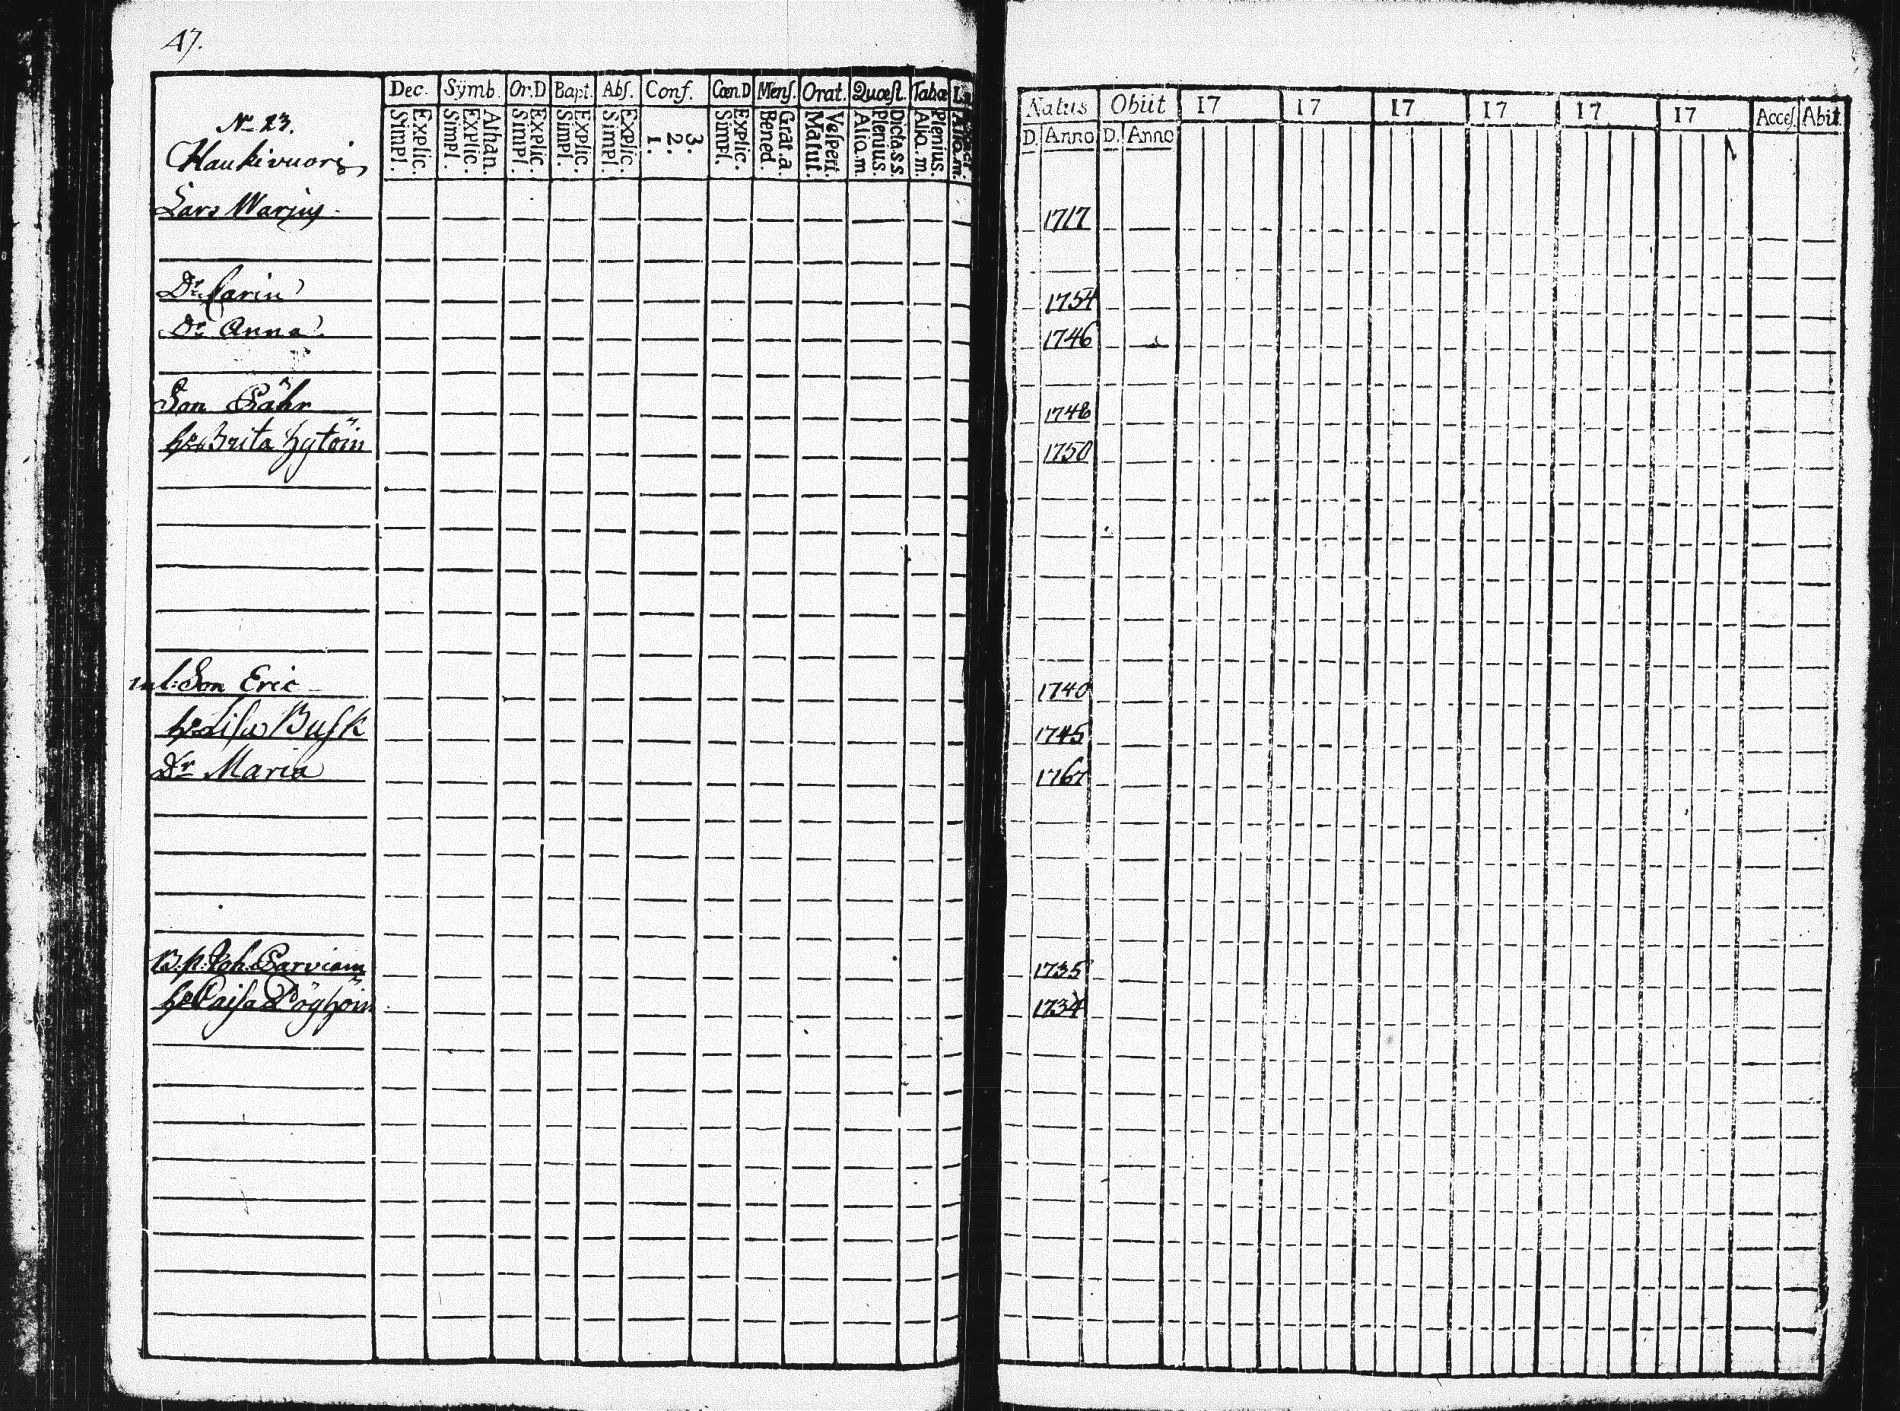 47.
Dec. Symb. Or.D Bapt. Abs. Conf. Cœn.D Mens. Orat. Quæst. Tabæ
Explic. Simpl. Athan. Explic. Simpl. Explic. Simpl. Explic. Simpl. Explic. Simpl. 3. 2. 1. Explic. Simpl. Grat.a. Bened. Vespert. Matut. Dicta.s.s Plenius. Alio.m. Plenius. Alio.m.
Natus Obiit 17 17 17 17 17 17 Acces. Abit
D. Anno D. Anno
No 23.
Haukivuori
Lars Warjus 1717
Dr Carin 1754
Dr Anna 1746
Son Påhr 1748
hu Brita Hytöin 1750
inl: Son Eric 1740
hu Lisa Busk 1745
Dr Maria 1767
B.p. Joh. Parviain 1735
hu Caisa Pöyhöin 1734